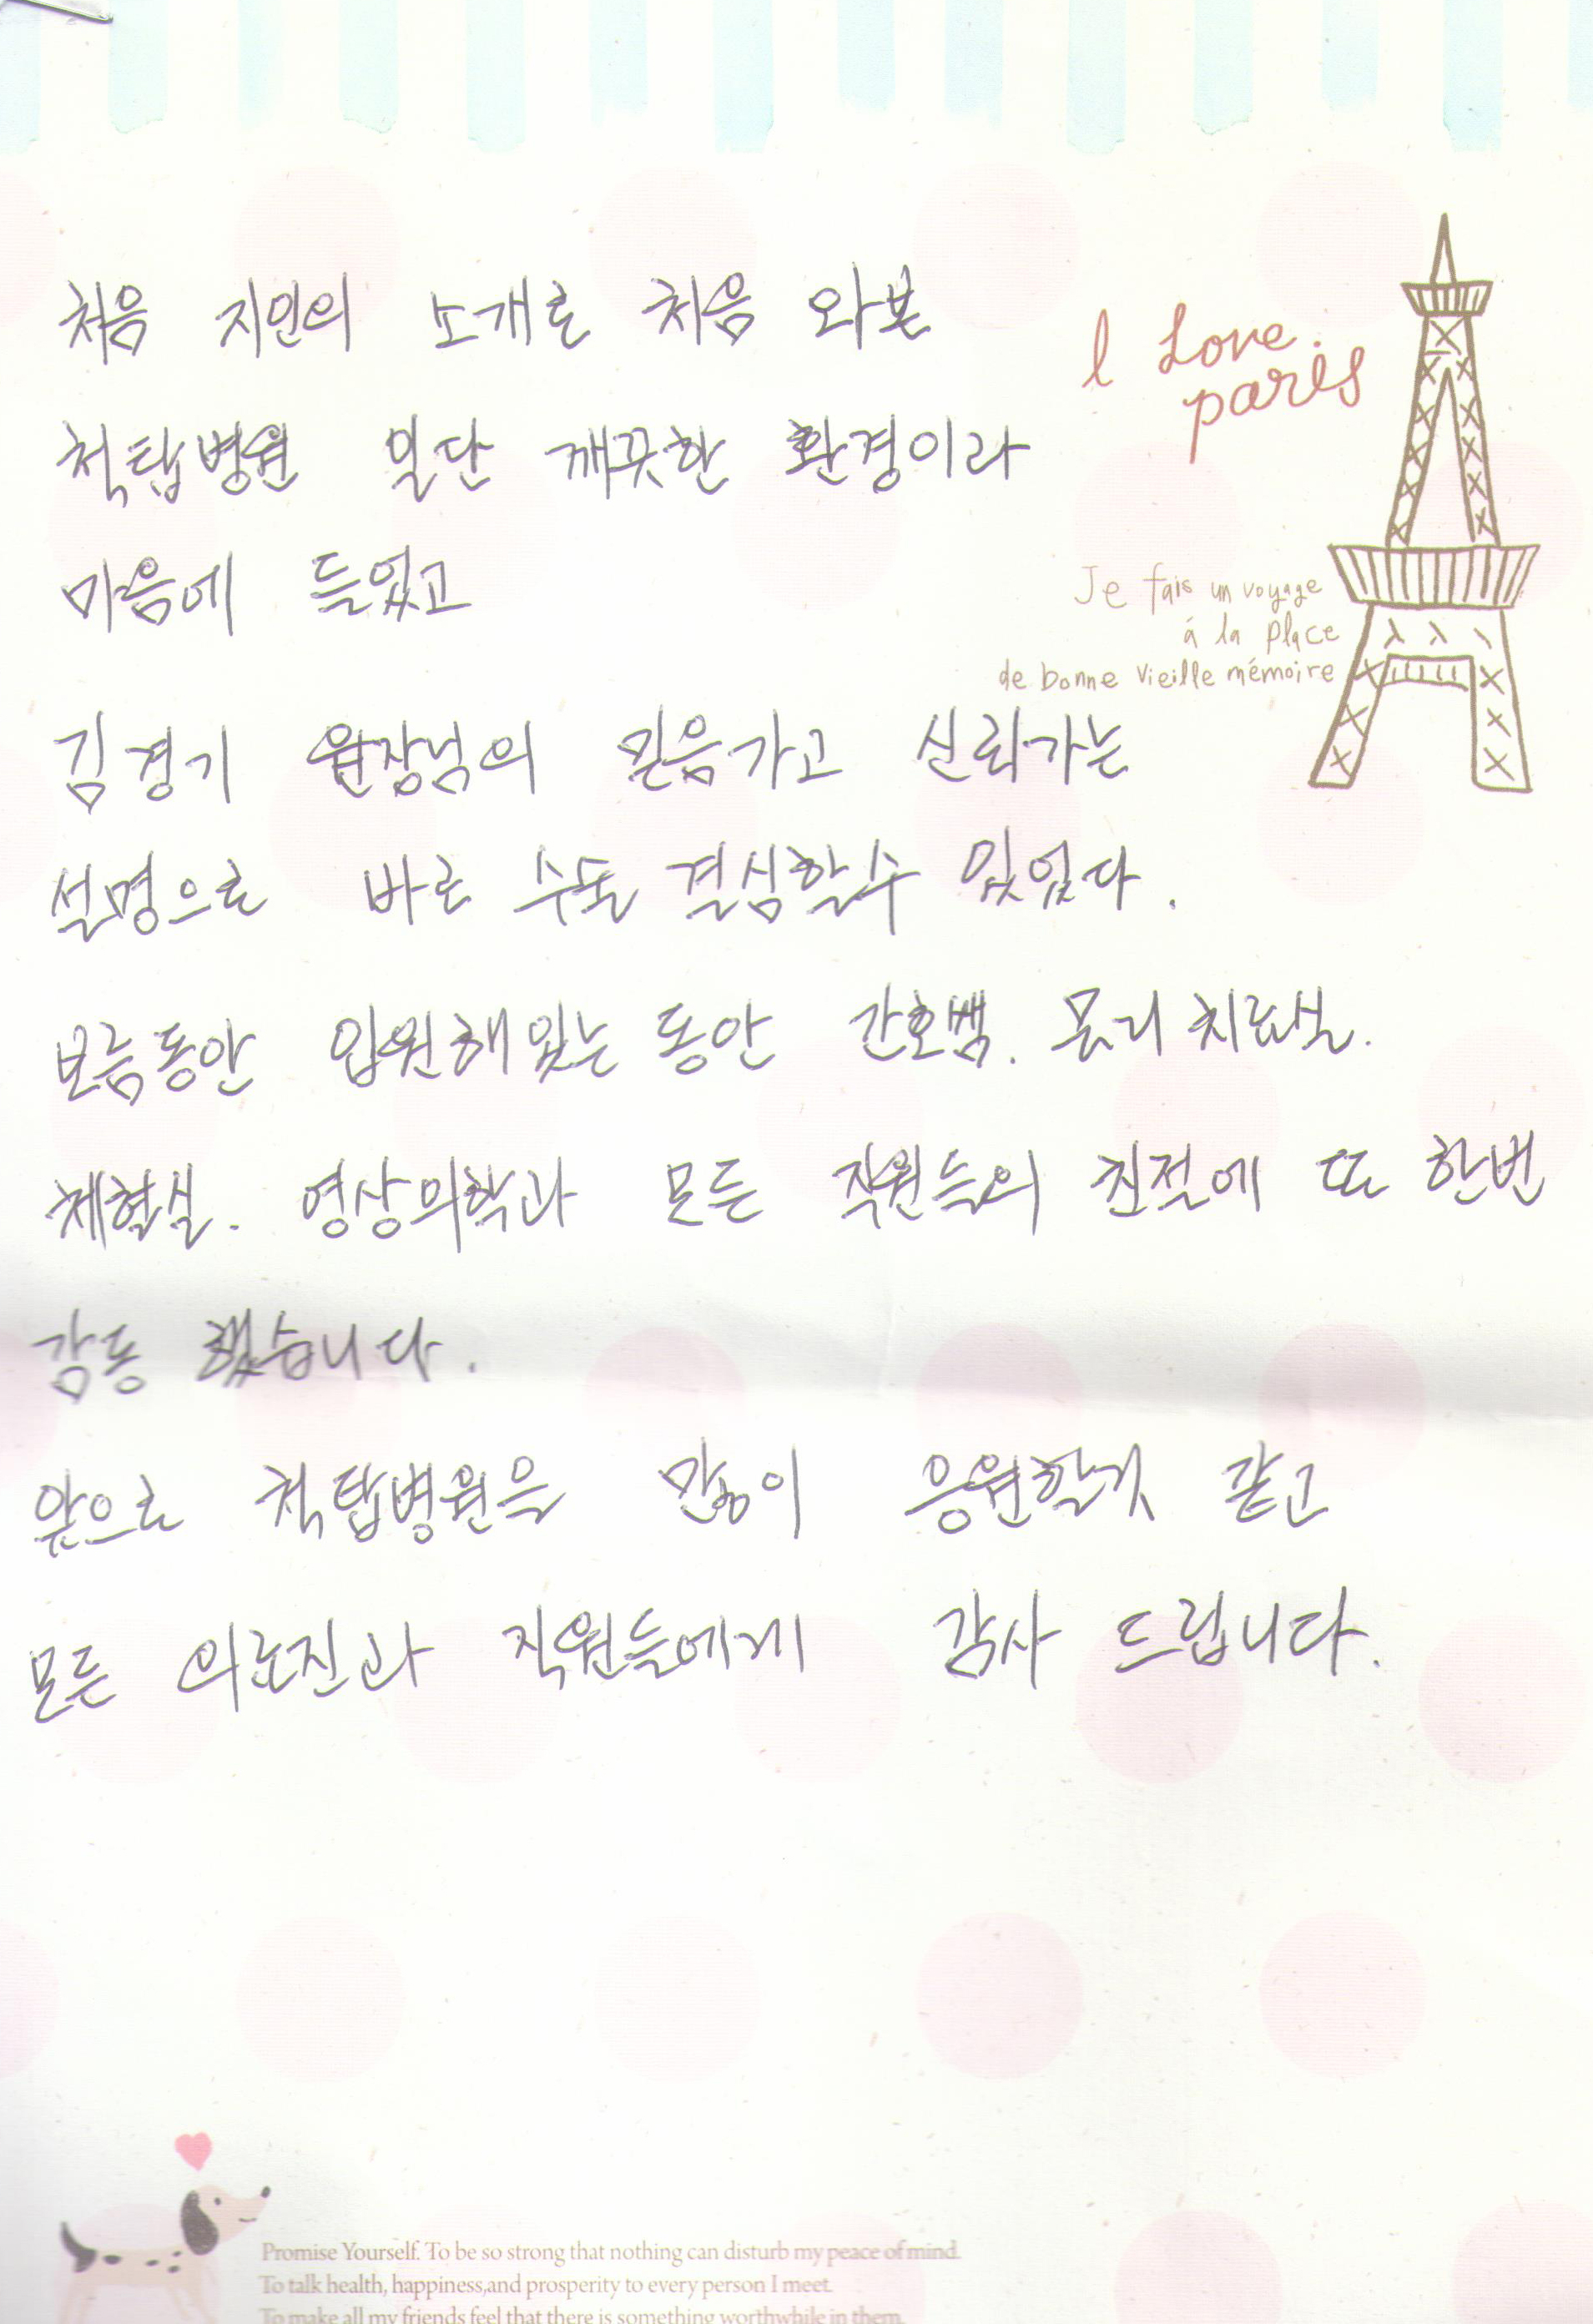 처음 지인의 소개로 처음 와본
척탑병원 일단 깨끗한 환경이라
마음에 들었고
김경기 원장님의 믿음가고 신뢰가는
설명으로 바로 수술 결심할수 있었다.
보름동안 입원해있는 동안 간호쌤. 물리치료실.
체혈실. 영상의학과 모든 직원들의 친절에 또 한번
감동 했습니다.
앞으로 척탑병원을 많이 응원할것 같고
모든 의료진과 직원들에게 감사 드립니다.
I Love
paris
Je fais un voyage
á la place
de bonne vieille mémoire
Promise Yourself. To be so strong that nothing can disturb my peace of mind.
To talk health, happiness,and prosperity to every person I meet.
To make all my friends feel that there is something worthwhile in them.